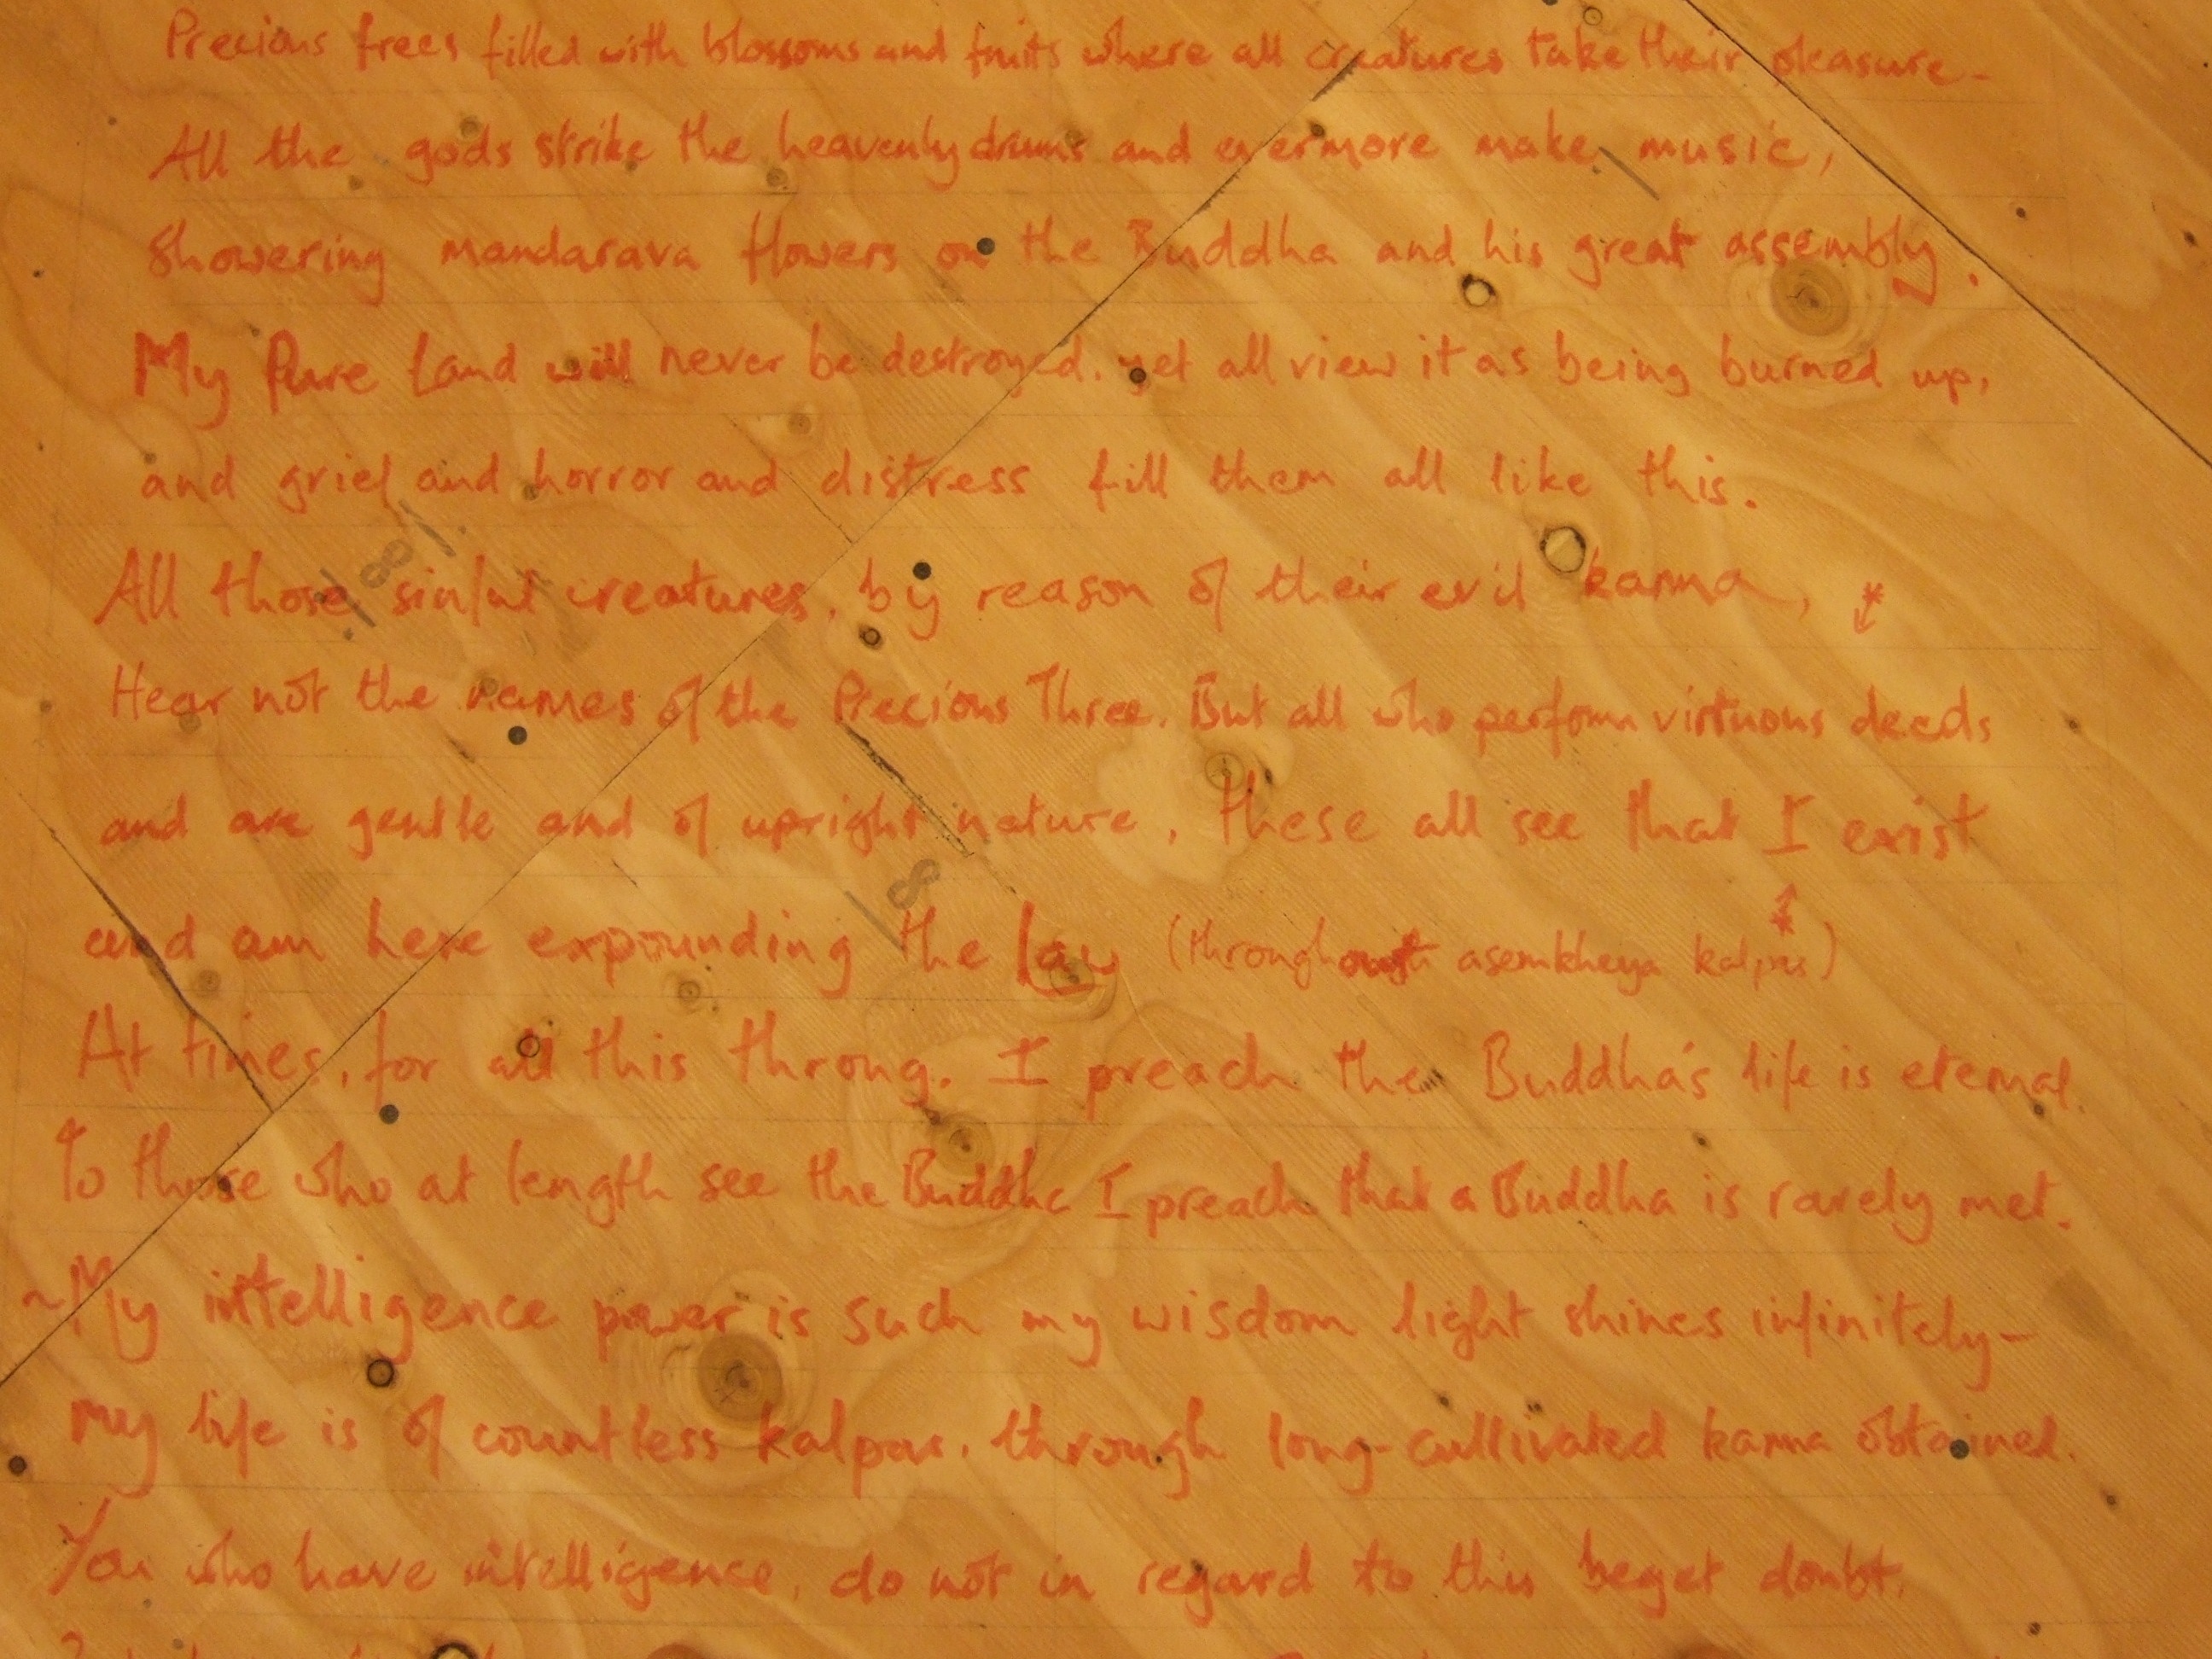 Precious trees filled with blossoms and fruits where all creatures take their pleasure-
All the gods strike the heavenly drums and evermore make music,
Showering mandarava flowers on the Buddha and his great assembly.
My Pure Land will never be destroyed. yet all view it as being burned up,
and grief and horror and distress fill them all like this.
All those sinful creatures, by reason of their evil karma, *
Hear not the names of the Precious Three. But all who perform virtuous deeds
and are gentle and of upright nature, these all see that I exist
and am here expounding the Law (throughout asemkheya kalpas) *
At times, for all this throng. I preach the Buddha's life is eternal.
To those who at length see the Buddha I preach that a Buddha is rarely met.
~My intelligence power is such my wisdom light shines infinitely-
my life is of countless kalpas, through long-cultivated karma obtained.
You who have intelligence, do not in regard to this beget doubt,